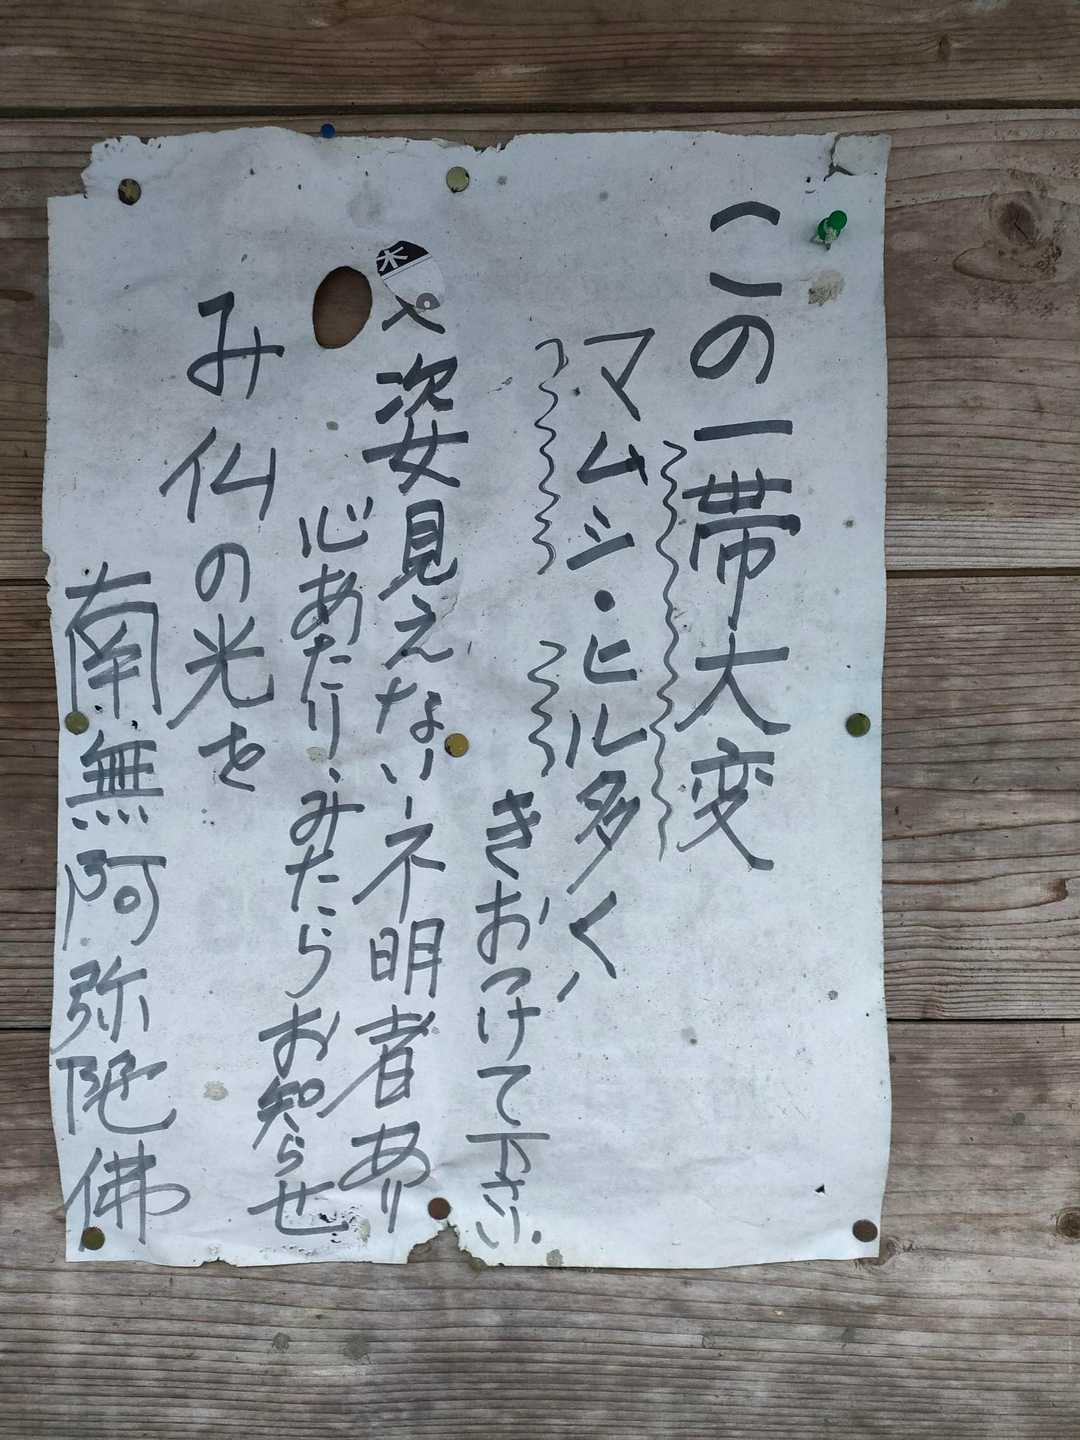 この一帯大変
マムシ・ヒル多く、
きおつけて下さい.
姿見えない不明者あり
心あたり、みたらお知らせ
み仏の光を
南無阿弥陀佛